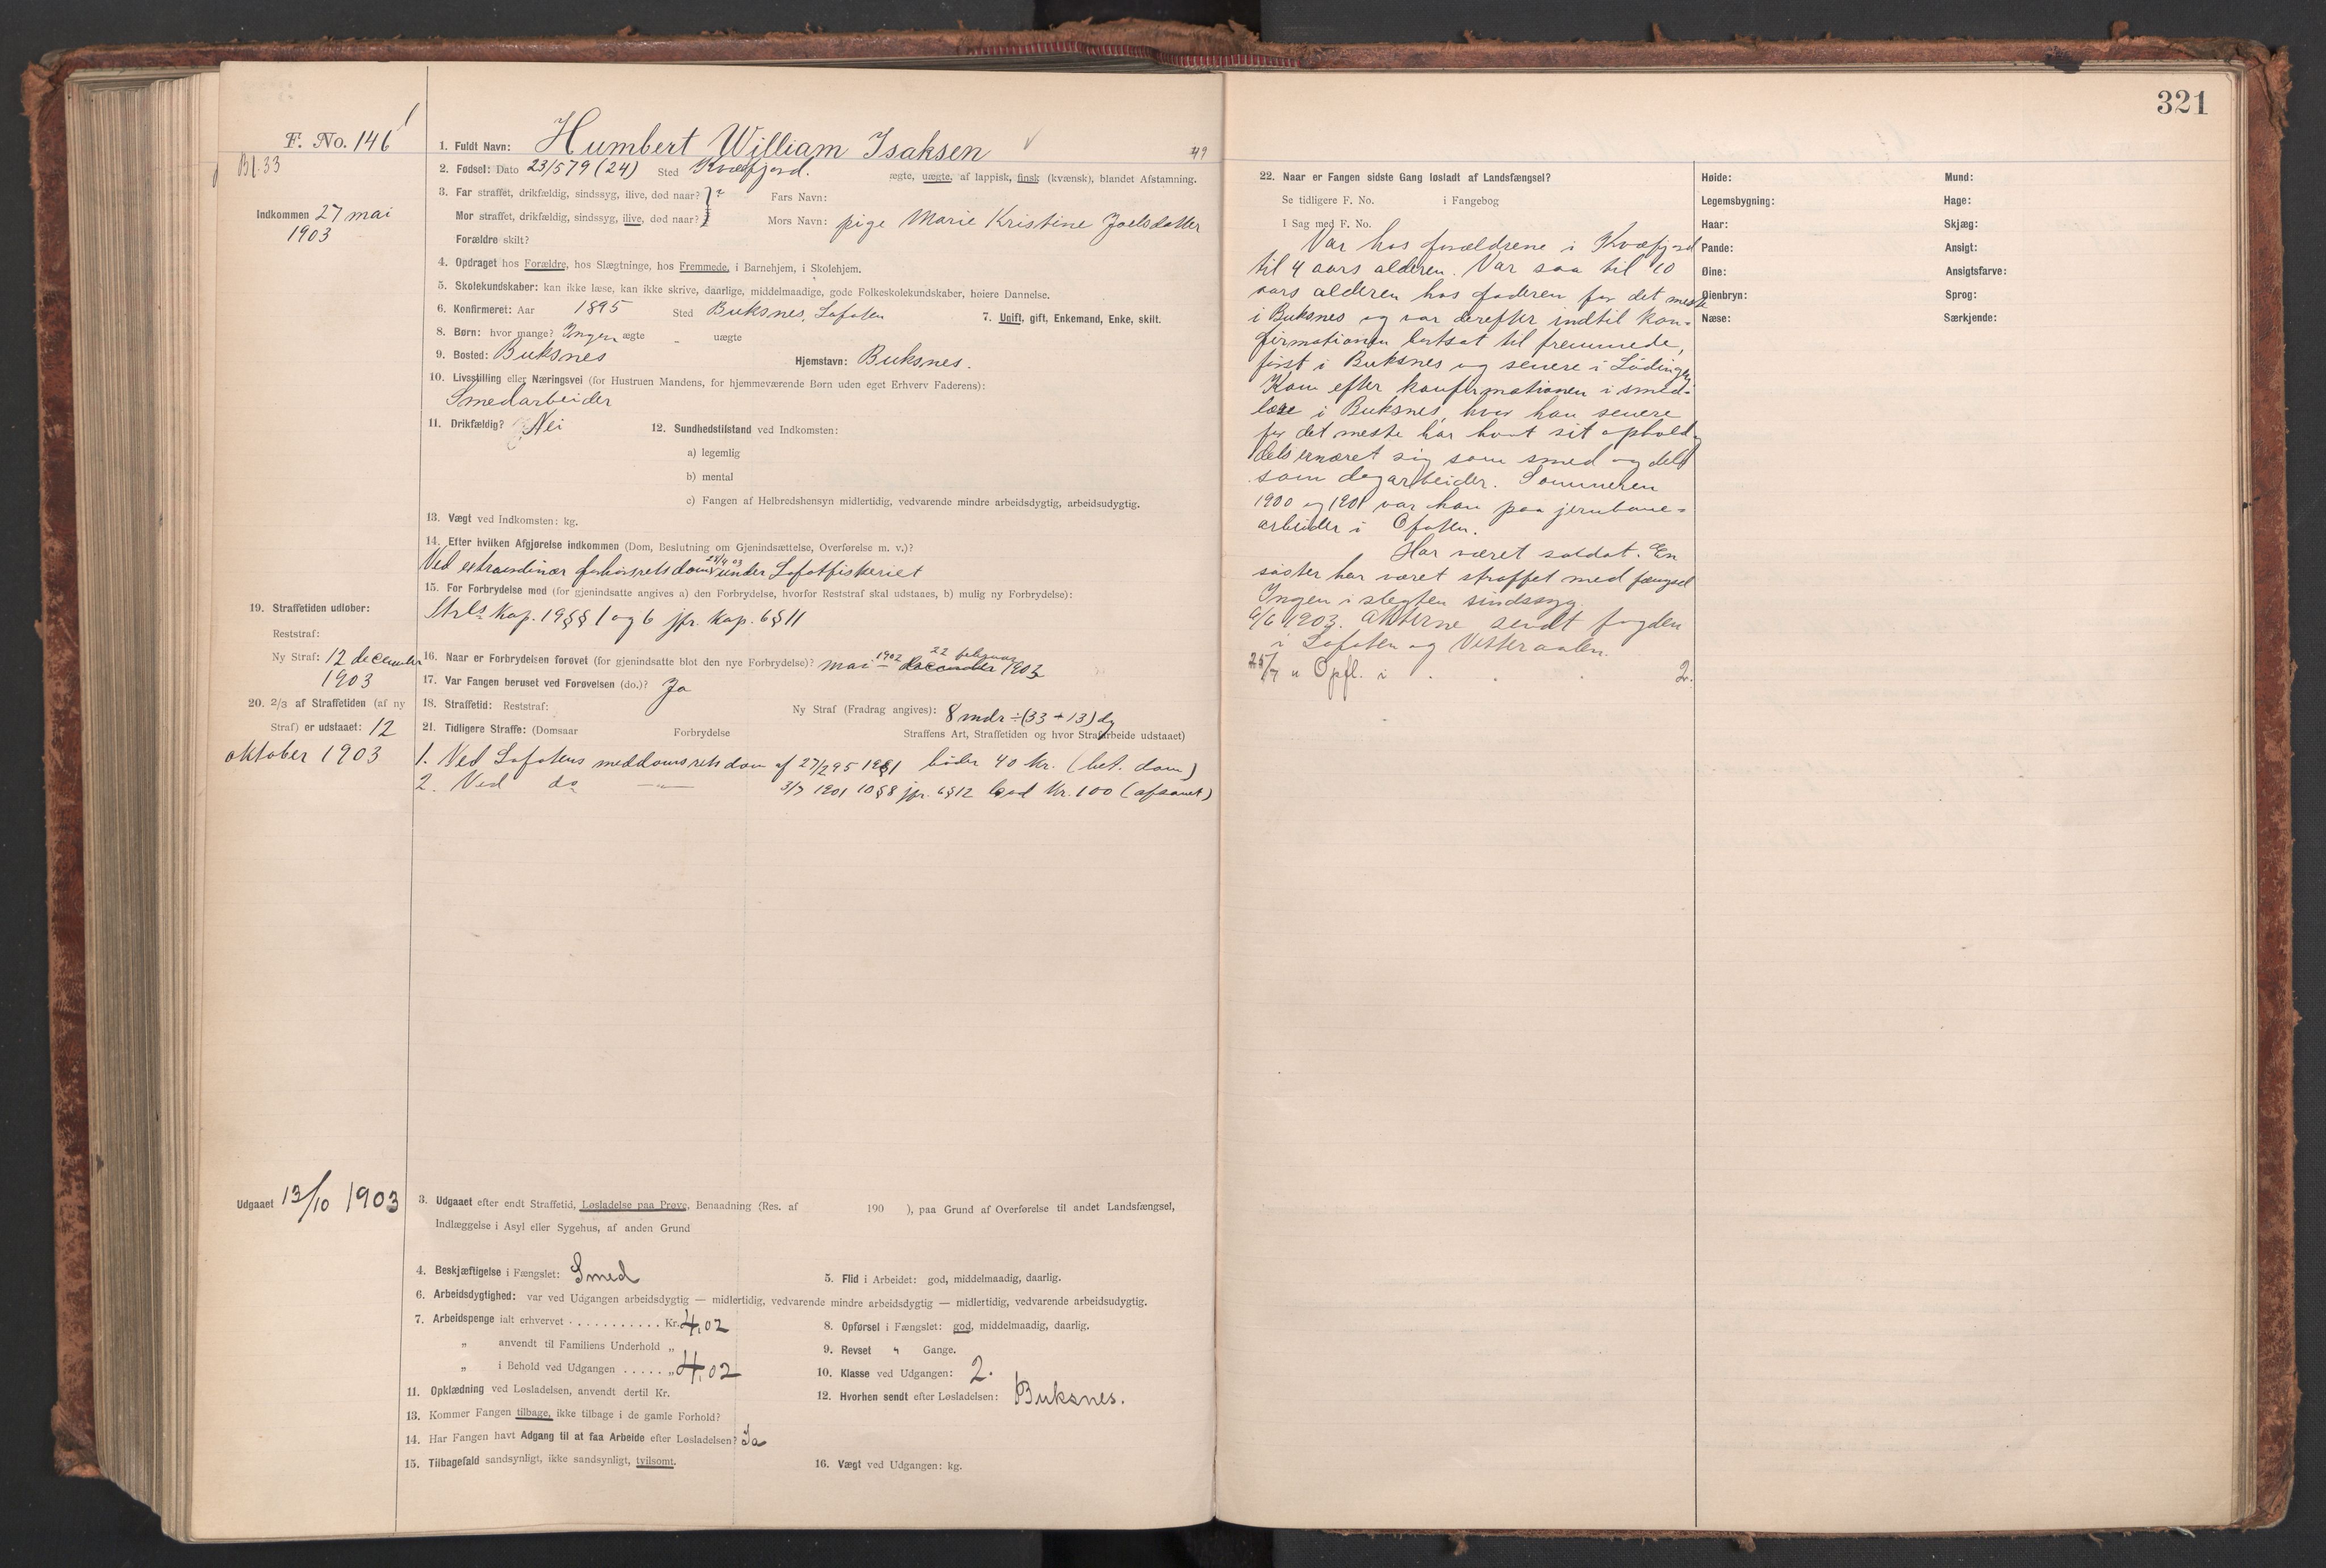 321
F. No. 146
Bl. 33
Indkommen 27 mai
1903
1. Fuldt Navn: Humbert William Isaksen
49
2. Fødsel: Dato 23/5 79 (24) Sted Kvæfjord. ægte, uægte, af lappisk, finsk (kvænsk), blandet Afstamning.
3. Far straffet, drikfældig, sindssyg, ilive, død naar? ? Fars Navn:
Mor straffet, drikfældig, sindssyg, ilive, død naar? Mors Navn: pige Marie Kristine Joelsdatter
Forældre skilt?
4. Opdraget hos Forældre, hos Slægtninge, hos Fremmede, i Barnehjem, i Skolehjem.
5. Skolekundskaber: kan ikke læse, kan ikke skrive, daarlige, middelmaadige, gode Folkeskolekundskaber, høiere Dannelse.
6. Konfirmeret: Aar 1895 Sted Buksnes, Lofoten 7. Ugift, gift, Enkemand, Enke, skilt.
8. Børn: hvor mange? Ingen ægte „ uægte
9. Bosted: Buksnes Hjemstavn: Buksnes.
10. Livsstilling eller Næringsvei (for Hustruen Mandens, for hjemmeværende Børn uden eget Erhverv Faderens):
Smedarbeider
11. Drikfældig? Nei 12. Sundhedstilstand ved Indkomsten:
a) legemlig
b) mental
c) Fangen af Helbredshensyn midlertidig, vedvarende mindre arbeidsdygtig, arbeidsudygtig.
13. Vægt ved Indkomsten: kg.
14. Efter hvilken Afgjørelse indkommen (Dom, Beslutning om Gjenindsættelse, Overførelse m. v.)?
Ved extraordinær forhørsretsdom 28/4 03 under Lofotfiskeriet
15. For Forbrydelse mod (for gjenindsatte angives a) den Forbrydelse, hvorfor Reststraf skal udstaaes, b) mulig ny Forbrydelse):
Strls Kap. 19 §§ 1 og 6 jfr. Kap. 6 § 11
19. Straffetiden udløber:
Reststraf:
Ny Straf: 12 december
1903
16. Naar er Forbrydelsen forøvet (for gjenindsatte blot den nye Forbrydelse)? mai 1902 – december 22 februar 1903
17. Var Fangen beruset ved Forøvelsen (do.)? Ja
20. 2/3 af Straffetiden (af ny
Straf) er udstaaet: 12
oktober 1903
18. Straffetid: Reststraf: Ny Straf (Fradrag angives): 8 mdr ÷ (33 + 13) dg
21. Tidligere Straffe: (Domsaar Forbrydelse Straffens Art, Straffetiden og hvor Strafarbeide udstaaet)
1. Ved Lofotens meddomsretsdom af 27/2 95 19§1 bøder 40 Kr. (bet. dom)
2. Ved do —„— 3/7 1901 10§8 jfr. 6§12 bod Kr. 100 (afsonet)
Udgaaet 13/10 1903
3. Udgaaet efter endt Straffetid, Løsladelse paa Prøve, Benaadning (Res. af 190 ), paa Grund af Overførelse til andet Landsfængsel,
Indlæggelse i Asyl eller Sygehus, af anden Grund
4. Beskjæftigelse i Fængslet: Smed 5. Flid i Arbeidet: god, middelmaadig, daarlig.
6. Arbeidsdygtighed: var ved Udgangen arbeidsdygtig — midlertidig, vedvarende mindre arbeidsdygtig — midlertidig, vedvarende arbeidsudygtig.
7. Arbeidspenge ialt erhvervet . . . . . . . . . . . Kr. 4,02 8. Opførsel i Fængslet: god, middelmaadig, daarlig.
„ anvendt til Familiens Underhold „ 9. Revset „ Gange.
„ i Behold ved Udgangen . . . . . „ 4,02 10. Klasse ved Udgangen: 2.
11. Opklædning ved Løsladelsen, anvendt dertil Kr. 12. Hvorhen sendt efter Løsladelsen: Buksnes.
13. Kommer Fangen tilbage, ikke tilbage i de gamle Forhold?
14. Har Fangen havt Adgang til at faa Arbeide efter Løsladelsen? Ja
15. Tilbagefald sandsynligt, ikke sandsynligt, tvilsomt. 16. Vægt ved Udgangen: kg.
22. Naar er Fangen sidste Gang løsladt af Landsfængsel?
Se tidligere F. No. i Fangebog
I Sag med F. No.
Var hos forældrene i Kvæfjord
til 4 aars alderen. Var saa til 10
aars alderen hos faderen for det meste
i Buksnes og var derefter indtil kon-
firmationen bortsat til fremmede,
først i Buksnes og senere i Lødingen
Kom efter konfirmationen i smed-
lære i Buksnes, hvor han senere
for det meste har havt sit ophold og
dels ernæret sig som smed og dels
som dagarbeider. Sommeren
1900 og 1901 var han paa jernbane-
arbeider i Ofoten.
Har været soldat. En
søster har været straffet med fængsel
Ingen i slegten sindssyg.
9/6 1903. Akterne sendt fogden
i Lofoten og Vesteraalen.
25/7 „ Opfl. i . . . 2.
Høide:
Legemsbygning:
Haar:
Pande:
Øine:
Øienbryn:
Næse:
Mund:
Hage:
Skjæg:
Ansigt:
Ansigtsfarve:
Sprog:
Særkjende: